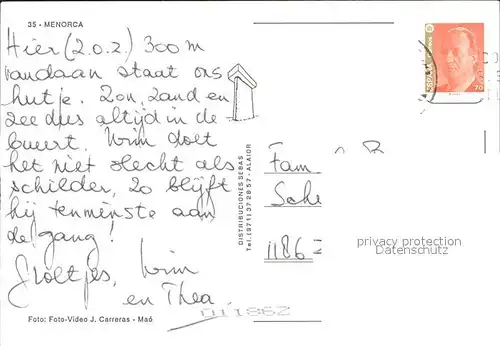 35 - MENORCA
Hier (2.0.2.) 300 m
vandaan staat ons
hutje. Zon, zand en
zee dus altijd in de
buurt. Wim doet
het niet slecht als
schilder, zo blijft
hij tenminste aan
de gang!
Groetjes, Wim
en Thea.
Foto: Foto-Video J. Carreras - Maó
DISTRIBUCIONES SEBAS
Tel. (971) 37 28 57 - ALAIOR
70
Fam
Sche
1186
privacy protection
Datenschutz
011862